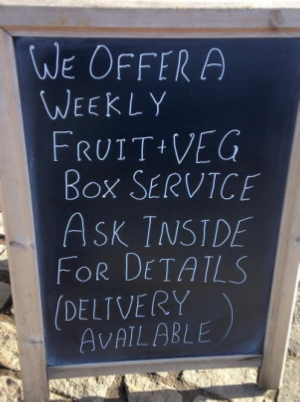 WE OFFER A
WEEKLY
FRUIT+VEG
BOX SERVICE
ASK INSIDE
FOR DETAILS
(DELIVERY
AVAILABLE)